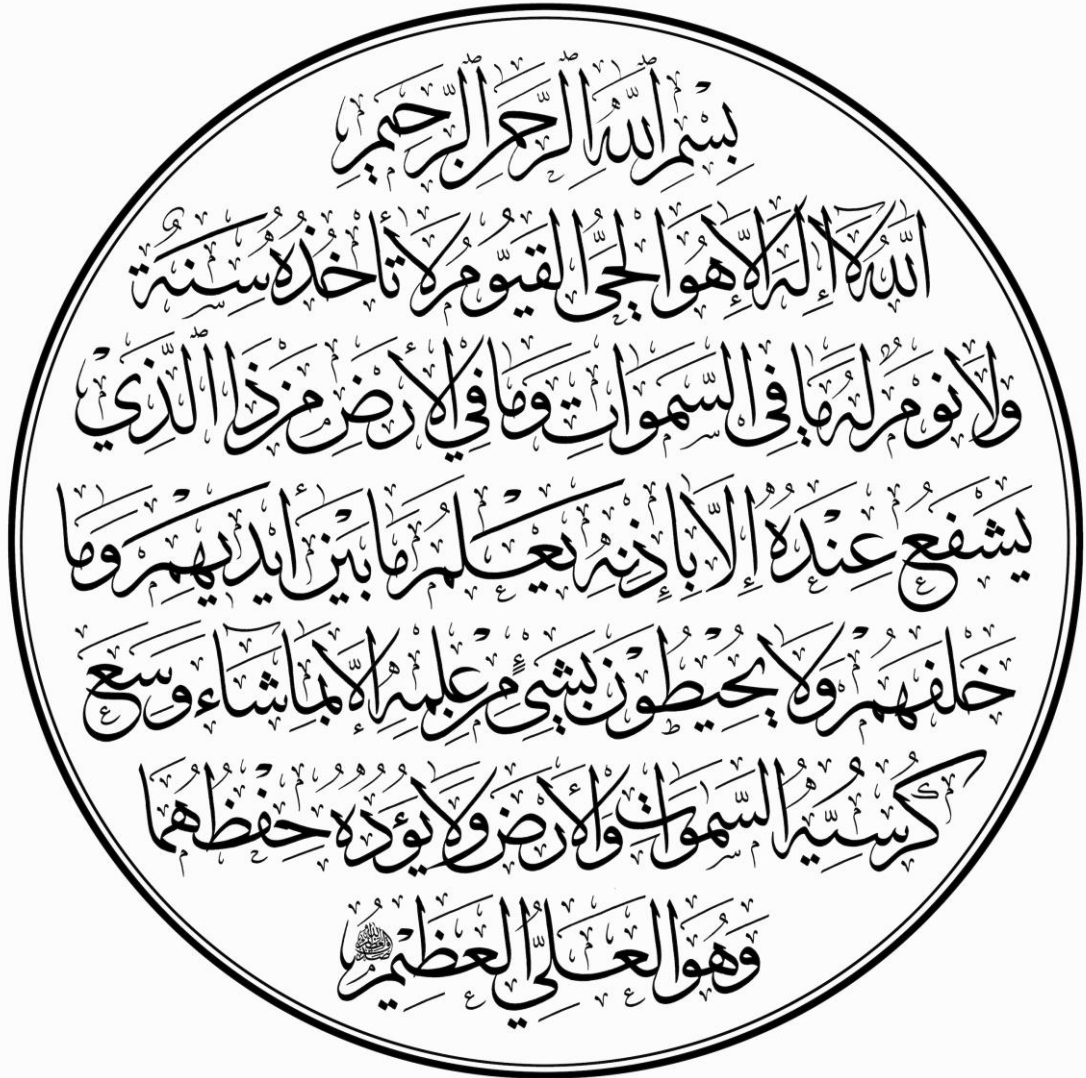 بِسْمِ ٱللَّهِ ٱلرَّحْمَنِ ٱلرَّحِيمِ
اَللّٰهُ لَآ اِلٰهَ اِلَّا هُوَ الْحَيُّ الْقَيُّومُ لَا تَأْخُذُهُ سِنَةٌ
وَلَا نَوْمٌ لَهُ مَا فِي السَّمٰوَاتِ وَمَا فِي الْأَرْضِ مَنْ ذَا ٱلَّذِيْ
يَشْفَعُ عِنْدَهُ إِلَّا بِإِذْنِهِ يَعْلَمُ مَا بَيْنَ أَيْدِيهِمْ وَمَا
خَلْفَهُمْ وَلَا يُحِيْطُوْنَ بِشَيْءٍ مِنْ عِلْمِهِ إِلَّا بِمَا شَآءَ وَسِعَ
كُرْسِيُّهُ السَّمٰوَاتِ وَالْأَرْضَ وَلَا يَؤُدُهُ حِفْظُهُمَا
وَهُوَ الْعَلِيُّ الْعَظِيْمُ